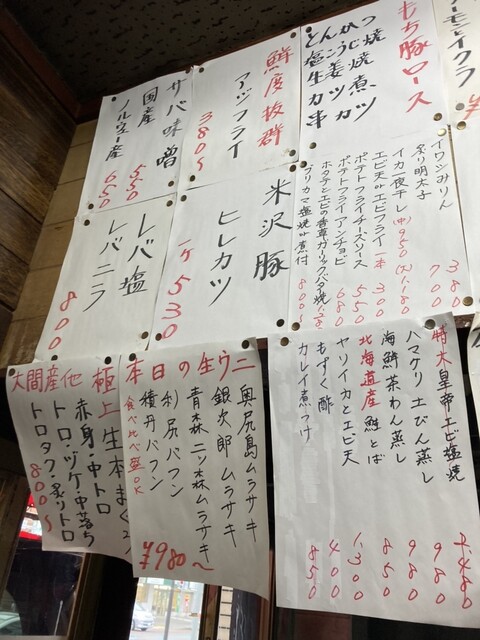 サーモンとイクラ
もち豚ロース
とんかつ
塩こうじ焼
生姜焼
カツ煮
串カツ
鮮度抜群
アジフライ
380〜
サバ味噌
国産
550
ノルウェー産
650
イワシみりん 380
炙り明太子 700
イカ一夜干し(中)950(大)1,180
エビ天 or エビフライ 一本 300
ポテトフライチーズソース 550
ポテトフライアンチョビ 680
ホタテとエビの香草ガーリックバター焼
ブリカマ塩焼 or 煮付 800〜
米沢豚
ヒレカツ
一ヶ530
レバ塩
レバニラ
800
特大皇帝エビ塩焼
ハマグリ土びん蒸し 980
海鮮茶わん蒸し 980
北海道産鮭とば 850
ヤリイカとエビ天 1,300
もずく酢 400
カレイ煮つけ 850
本日の生ウニ
奥尻島ムラサキ
銀次郎ムラサキ
青森二ッ森ムラサキ
利尻バフン
積丹バフン
食べ比べ盛OK
¥980〜
大間産他 極上生本まぐろ
赤身・中トロ
トロ・ヅケ・中落ち
トロタク・炙りトロ
800〜